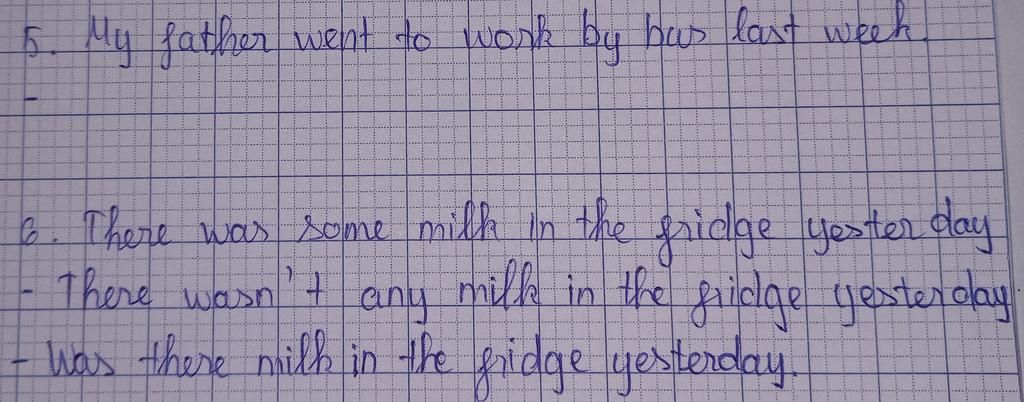 5. My father went to work by bus last week.
-
6. There was some milk in the fridge yesterday
- There wasn't any milk in the fridge yesterday
- Was there milk in the fridge yesterday.